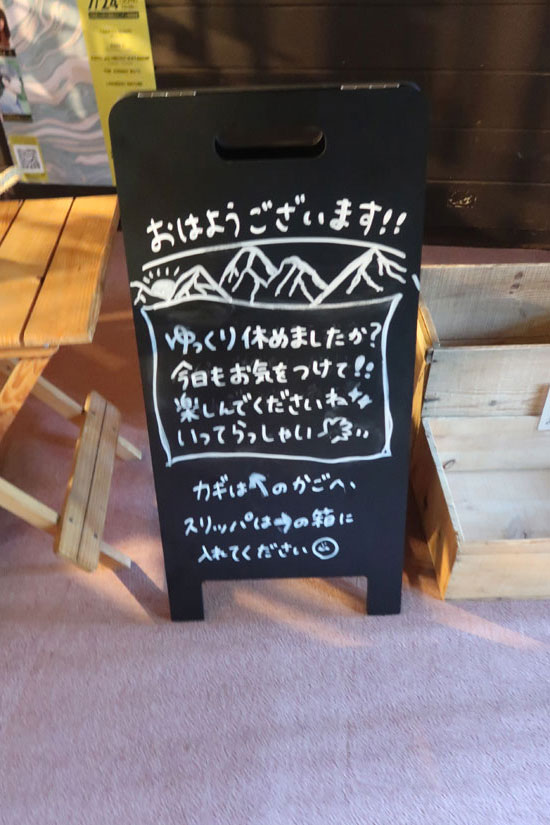 7/24
おはようございます!!
ゆっくり休めましたか?
今日もお気をつけて!!
楽しんでくださいね
いってらっしゃい
カギは↖のかごへ、
スリッパは→の箱に
入れてください